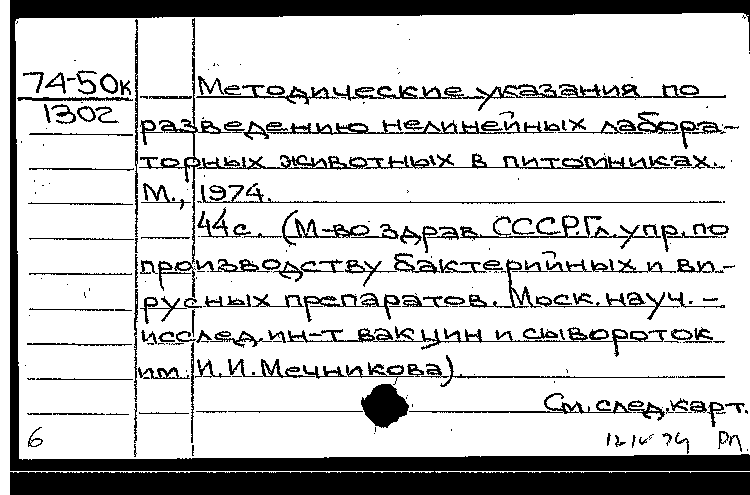 74-50к
1302
Методические указания по
разведению нелинейных лабора-
торных животных в питомниках.
М., 1974.
44с. (М-во здрав. СССР. Гл. упр. по
производству бактерийных и ви-
русных препаратов. Моск. науч.-
исслед. ин-т вакцин и сывороток
им. И.И. Мечникова).
См. след. карт.
6